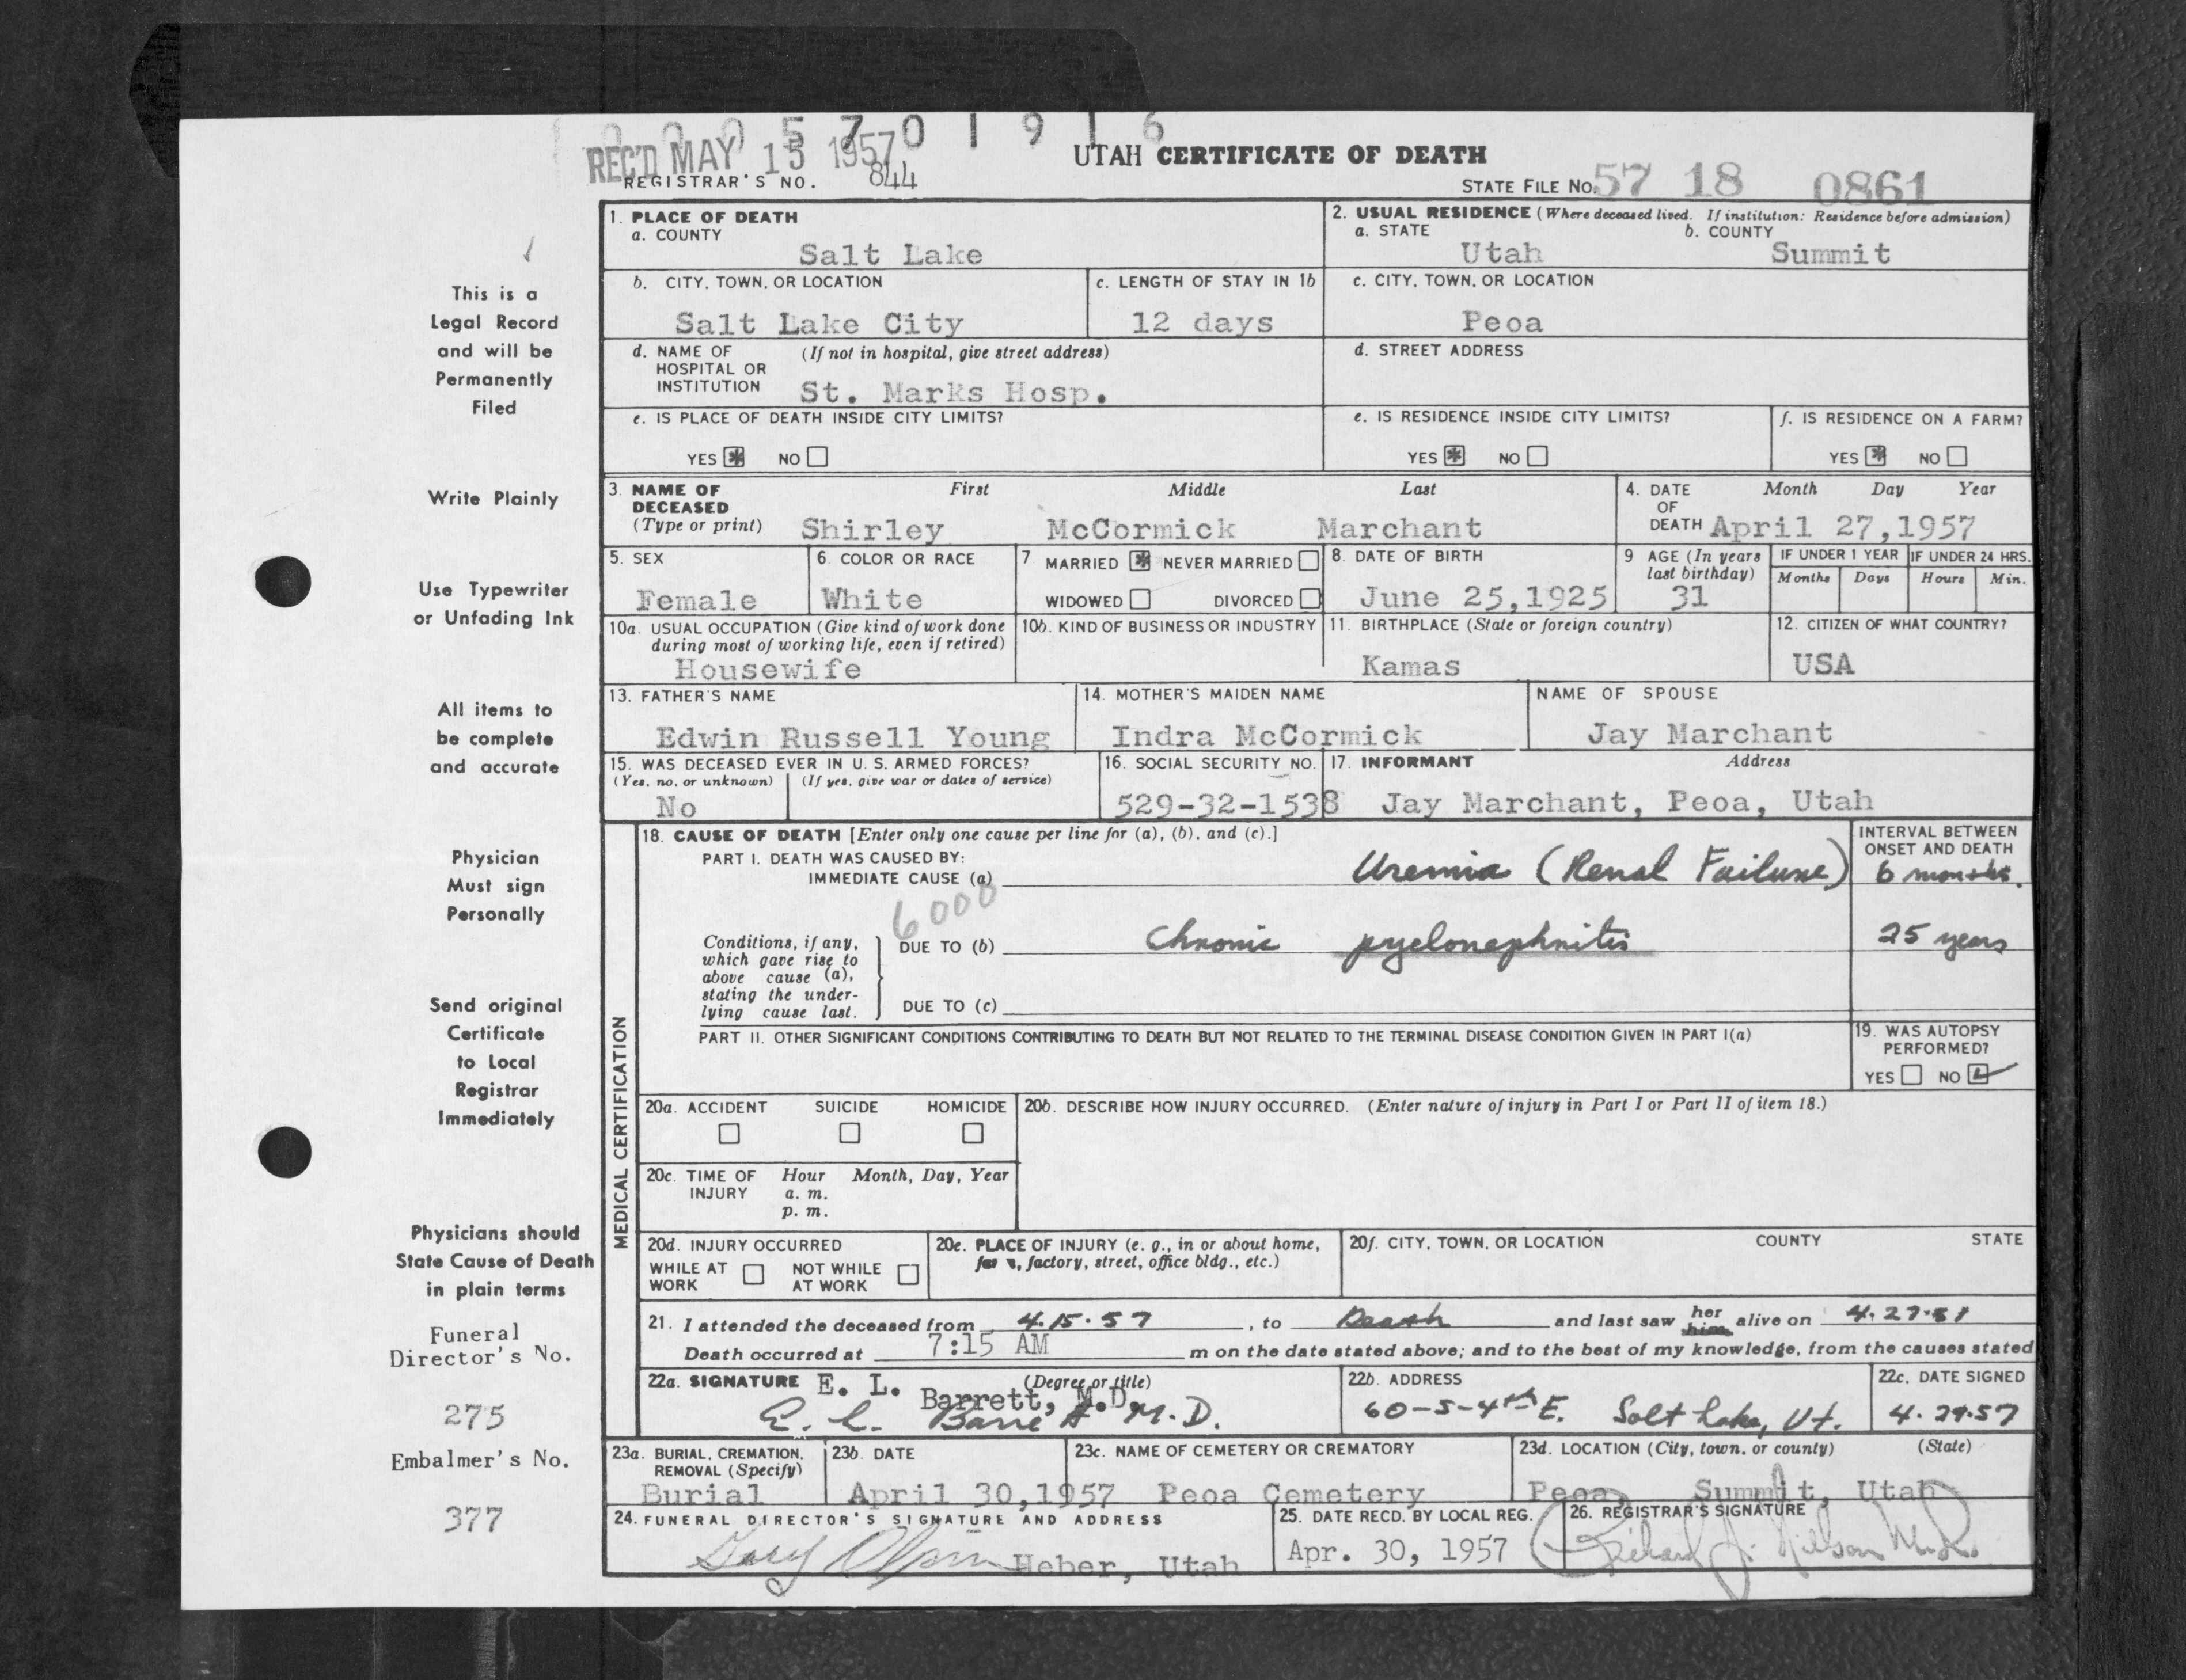 0 0 0 5 7 0 1 9 1 6
REC'D MAY 15 1957
UTAH CERTIFICATE OF DEATH
REGISTRAR'S NO. 844
STATE FILE NO. 57 18 0861
This is a
Legal Record
and will be
Permanently
Filed
Write Plainly
Use Typewriter
or Unfading Ink
All items to
be complete
and accurate
Physician
Must sign
Personally
Send original
Certificate
to Local
Registrar
Immediately
Physicians should
State Cause of Death
in plain terms
Funeral
Director's No.
275
Embalmer's No.
377
1. PLACE OF DEATH
a. COUNTY
Salt Lake
2. USUAL RESIDENCE (Where deceased lived. If institution: Residence before admission)
a. STATE b. COUNTY
Utah Summit
b. CITY, TOWN, OR LOCATION
Salt Lake City
c. LENGTH OF STAY IN 1b
12 days
c. CITY, TOWN, OR LOCATION
Peoa
d. NAME OF (If not in hospital, give street address)
HOSPITAL OR
INSTITUTION St. Marks Hosp.
d. STREET ADDRESS
e. IS PLACE OF DEATH INSIDE CITY LIMITS?
YES * NO
e. IS RESIDENCE INSIDE CITY LIMITS?
YES * NO
f. IS RESIDENCE ON A FARM?
YES * NO
3. NAME OF First Middle Last
DECEASED
(Type or print) Shirley McCormick Marchant
4. DATE Month Day Year
OF
DEATH April 27,1957
5. SEX
Female
6. COLOR OR RACE
White
7 MARRIED * NEVER MARRIED
WIDOWED DIVORCED
8. DATE OF BIRTH
June 25,1925
9 AGE (In years
last birthday)
31
IF UNDER 1 YEAR
Months Days
IF UNDER 24 HRS.
Hours Min.
10a. USUAL OCCUPATION (Give kind of work done
during most of working life, even if retired)
Housewife
10b. KIND OF BUSINESS OR INDUSTRY
11. BIRTHPLACE (State or foreign country)
Kamas
12. CITIZEN OF WHAT COUNTRY?
USA
13. FATHER'S NAME
Edwin Russell Young
14. MOTHER'S MAIDEN NAME
Indra McCormick
NAME OF SPOUSE
Jay Marchant
15. WAS DECEASED EVER IN U. S. ARMED FORCES?
(Yes, no, or unknown) (If yes, give war or dates of service)
No
16. SOCIAL SECURITY NO.
529-32-1538
17. INFORMANT Address
Jay Marchant, Peoa, Utah
MEDICAL CERTIFICATION
18. CAUSE OF DEATH [Enter only one cause per line for (a), (b), and (c).]
INTERVAL BETWEEN
ONSET AND DEATH
PART I. DEATH WAS CAUSED BY:
IMMEDIATE CAUSE (a) Uremia (Renal Failure) 6 months.
6000
Conditions, if any,
which gave rise to
above cause (a),
stating the under-
lying cause last.
DUE TO (b) Chronic pyelonephritis 25 years
DUE TO (c)
PART II. OTHER SIGNIFICANT CONDITIONS CONTRIBUTING TO DEATH BUT NOT RELATED TO THE TERMINAL DISEASE CONDITION GIVEN IN PART I(a)
19. WAS AUTOPSY
PERFORMED?
YES NO
20a. ACCIDENT SUICIDE HOMICIDE
20b. DESCRIBE HOW INJURY OCCURRED. (Enter nature of injury in Part I or Part II of item 18.)
20c. TIME OF Hour Month, Day, Year
INJURY a. m.
p. m.
20d. INJURY OCCURRED
WHILE AT WORK NOT WHILE AT WORK
20e. PLACE OF INJURY (e. g., in or about home,
factory, street, office bldg., etc.)
20f. CITY, TOWN, OR LOCATION COUNTY STATE
21. I attended the deceased from 4.15.57, to Death and last saw her him alive on 4.27.57
Death occurred at 7:15 AM m on the date stated above; and to the best of my knowledge, from the causes stated
22a. SIGNATURE (Degree or title)
E. L. Barrett, M.D.
E. L. Barrett M.D.
22b. ADDRESS
60-S-4th E. Salt Lake, Ut.
22c. DATE SIGNED
4.29.57
23a. BURIAL, CREMATION,
REMOVAL (Specify)
Burial
23b. DATE
April 30,1957
23c. NAME OF CEMETERY OR CREMATORY
Peoa Cemetery
23d. LOCATION (City, town, or county) (State)
Peoa, Summit, Utah
24. FUNERAL DIRECTOR'S SIGNATURE AND ADDRESS
Heber, Utah
25. DATE RECD. BY LOCAL REG.
Apr. 30, 1957
26. REGISTRAR'S SIGNATURE
Richard J. Nilson